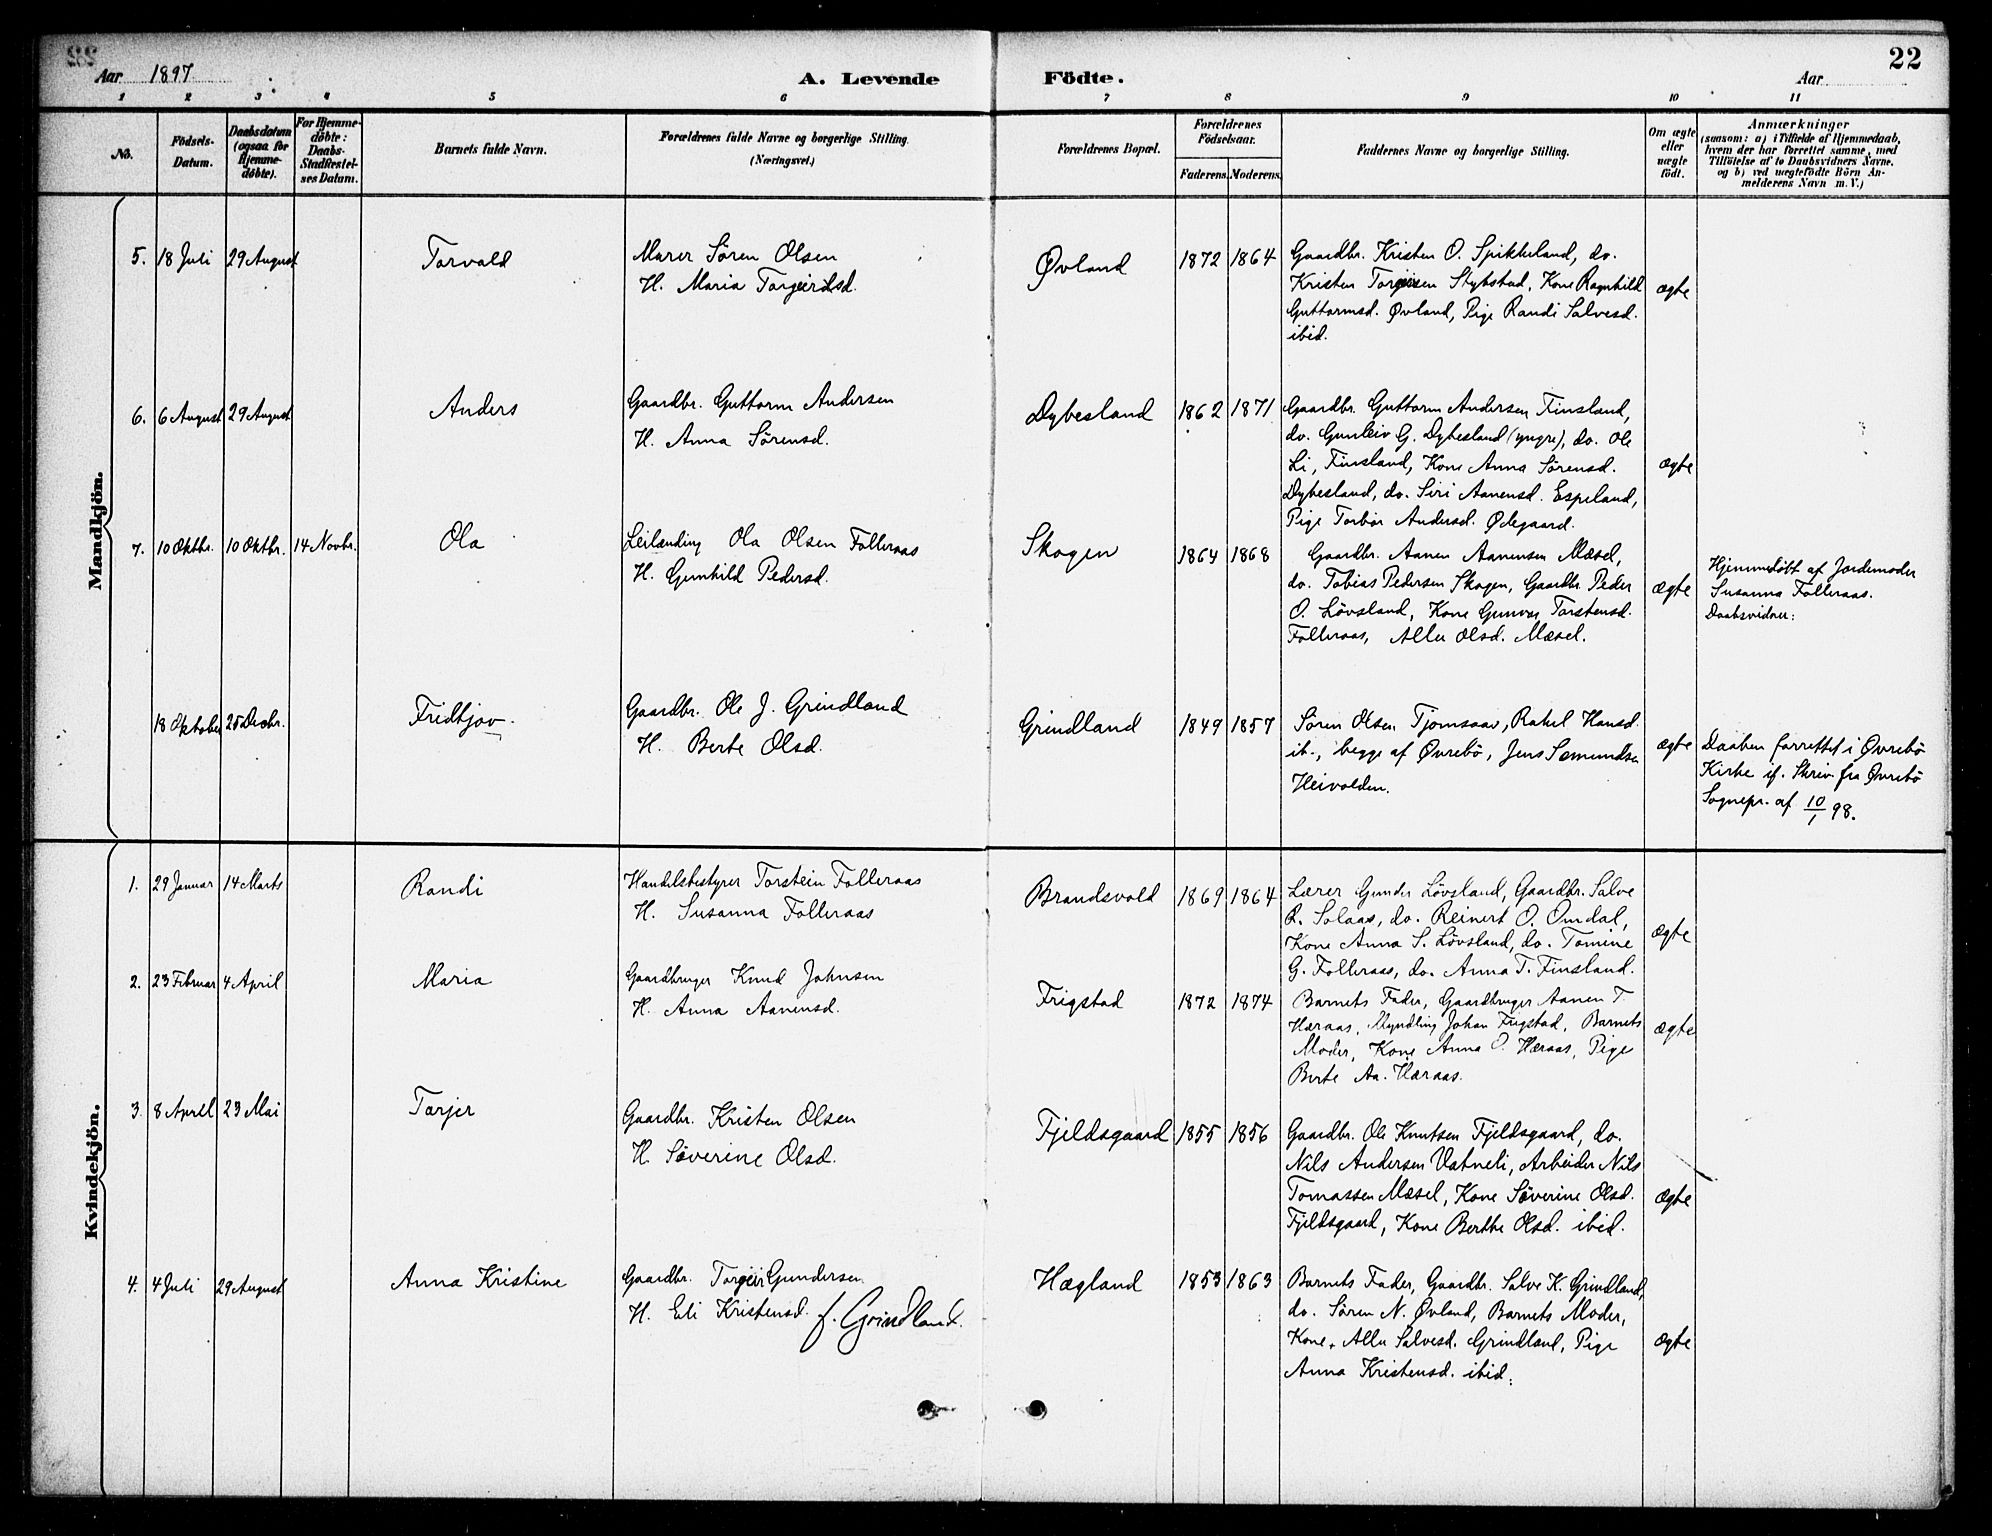 22
Aar 1897
A. Levende Födte.
Aar
1 2 3 4 5 6 7 8 9 10 11
No.
Födsels-Datum.
Daabsdatum (ogsaa for Hjemme-döbte).
For Hjemme-döbte: Daabs-Stadfæstel-ses Datum.
Barnets fulde Navn.
Forældrenes fulde Navne og borgerlige Stilling. (Næringsvei.)
Forældrenes Bopæl.
Forældrenes Födselsaar.
Faderens. Moderens.
Faddernes Navne og borgerlige Stilling.
Om ægte eller uægte födt.
Anmærkninger
(saasom: a) i Tilfælde af Hjemmedaab,
hvem der har forrettet samme, med
Tilföielse af to Daabsvidners Navne,
og b) ved uægtefödte Börn An-
melderens Navn m. V.)
Mandkjön.
5. 18 Juli 29 August Torvald
Murer Sören Olsen
H. Maria Torgeirdsd.
Øvland 1872 1864
Gaardbr. Kristen O. Spikkeland, do.
Kristen Torgeirsen Stybstad, Kone Ragnhild
Guttormsd. Øvland, Pige Randi Salvesd.
ibid.
ægte
6. 6 August 29 August Anders
Gaardbr. Guttorm Andersen
H. Anna Sörensd.
Dybesland 1862 1871
Gaardbr. Guttorm Andersen Finsland,
do. Gunleiv G. Dybesland (yngre), do. Ole
Li, Finsland, Kone Anna Sörensd.
Dybesland, do. Siri Aanensd. Espeland,
Pige Torbör Andersd. Ødegaard.
ægte
7. 10 Oktbr. 10 Oktbr. 14 Novbr. Ola
Leilænding Ola Olsen Folleraas
H. Gunhild Pedersd.
Skogen 1864 1868
Gaardbr. Aanen Aanensen Mæsel,
do. Tobias Pedersen Skogen, Gaardbr. Peder
O. Lövsland, Kone Gunvor Torstensd.
Folleraas, Alleu Olsd. Mæsel.
ægte
Hjemmedöbt af Jordemoder
Susanna Folleraas.
Daabsvidner:
18 Oktober 25 Decbr. Fridtjov.
Gaardbr. Ole J. Grindland
H. Berte Olsd.
Grindland 1849 1857
Sören Olsen Tjomsaas, Rakel Hansd.
ib., begge af Øvrebö, Jens Semundsen
Heivolden.
ægte
Daaben forrettet i Øvrebö
Kirke if. Skriv. fra Øvrebö
Sognepr. af 10/1 98.
Kvindekjön.
1. 29 Januar 14 Marts Randi
Handelsbestyrer Torstein Folleraas
H. Susanna Folleraas
Brandsvold 1869 1864
Lærer Gunder Lövsland, Gaardbr. Salve
R. Solaas, do. Reinert O. Omdal,
Kone Anna S. Lövsland, do. Tomine
G. Folleraas, do. Anna T. Finsland.
ægte
2. 23 Februar 4 April Maria
Gaardbruger Knud Johnsen
H. Anna Aanensd.
Frigstad 1872 1874
Barnets Fader, Gaardbruger Aanen T.
Hæraas, Myndling Johan Frigstad, Barnets
Moder, Kone Anna O. Hæraas, Pige
Berte Aa. Hæraas.
ægte
3. 8 April 23 Mai Torjer
Gaardbr. Kristen Olsen
H. Söverine Olsd.
Fjeldsgaard 1855 1856
Gaardbr. Ole Knutsen Fjeldsgaard, do.
Nils Andersen Vatneli, Arbeider Nils
Tomassen Mæsel, Kone Söverine Olsd.
Fjeldsgaard, Kone Berthe Olsd. ibid.
ægte
4. 4 Juli 29 August Anna Kristine
Gaardbr. Torgeir Gundersen
H. Eli Kristensd. f. Grindland.
Hægland 1853 1863
Barnets Fader, Gaardbr. Salve K. Grindland,
do. Sören N. Øvland, Barnets Moder,
Kone Alleu Salvesd. Grindland, Pige
Anna Kristensd. ibid.
ægte